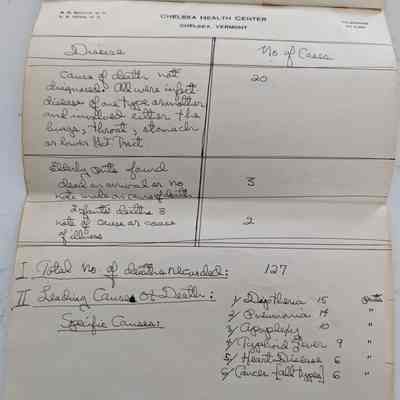 CHELSEA HEALTH CENTER
CHELSEA, VERMONT
Disease No. of Cases
Cause of death not 20
diagnosed. All were infect
disease of one type or another
and involved either the
lungs, throat, stomach
or lower Tract
Elderly pats found
dead on arrival or no 3
note made as cause of death
2 infants deaths &
note of cause as cause 2
of illness
I Total No. of deaths recorded: 127
II Leading Causes of Death:
Specific Causes:
1/ Diptheria 15 pats
2/ Pneumonia 14 "
3/ Apoplexy 10 "
4/ Typhoid Fever 9 "
5/ Heart Disease 6 "
6/ Cancer [all types] 6 "